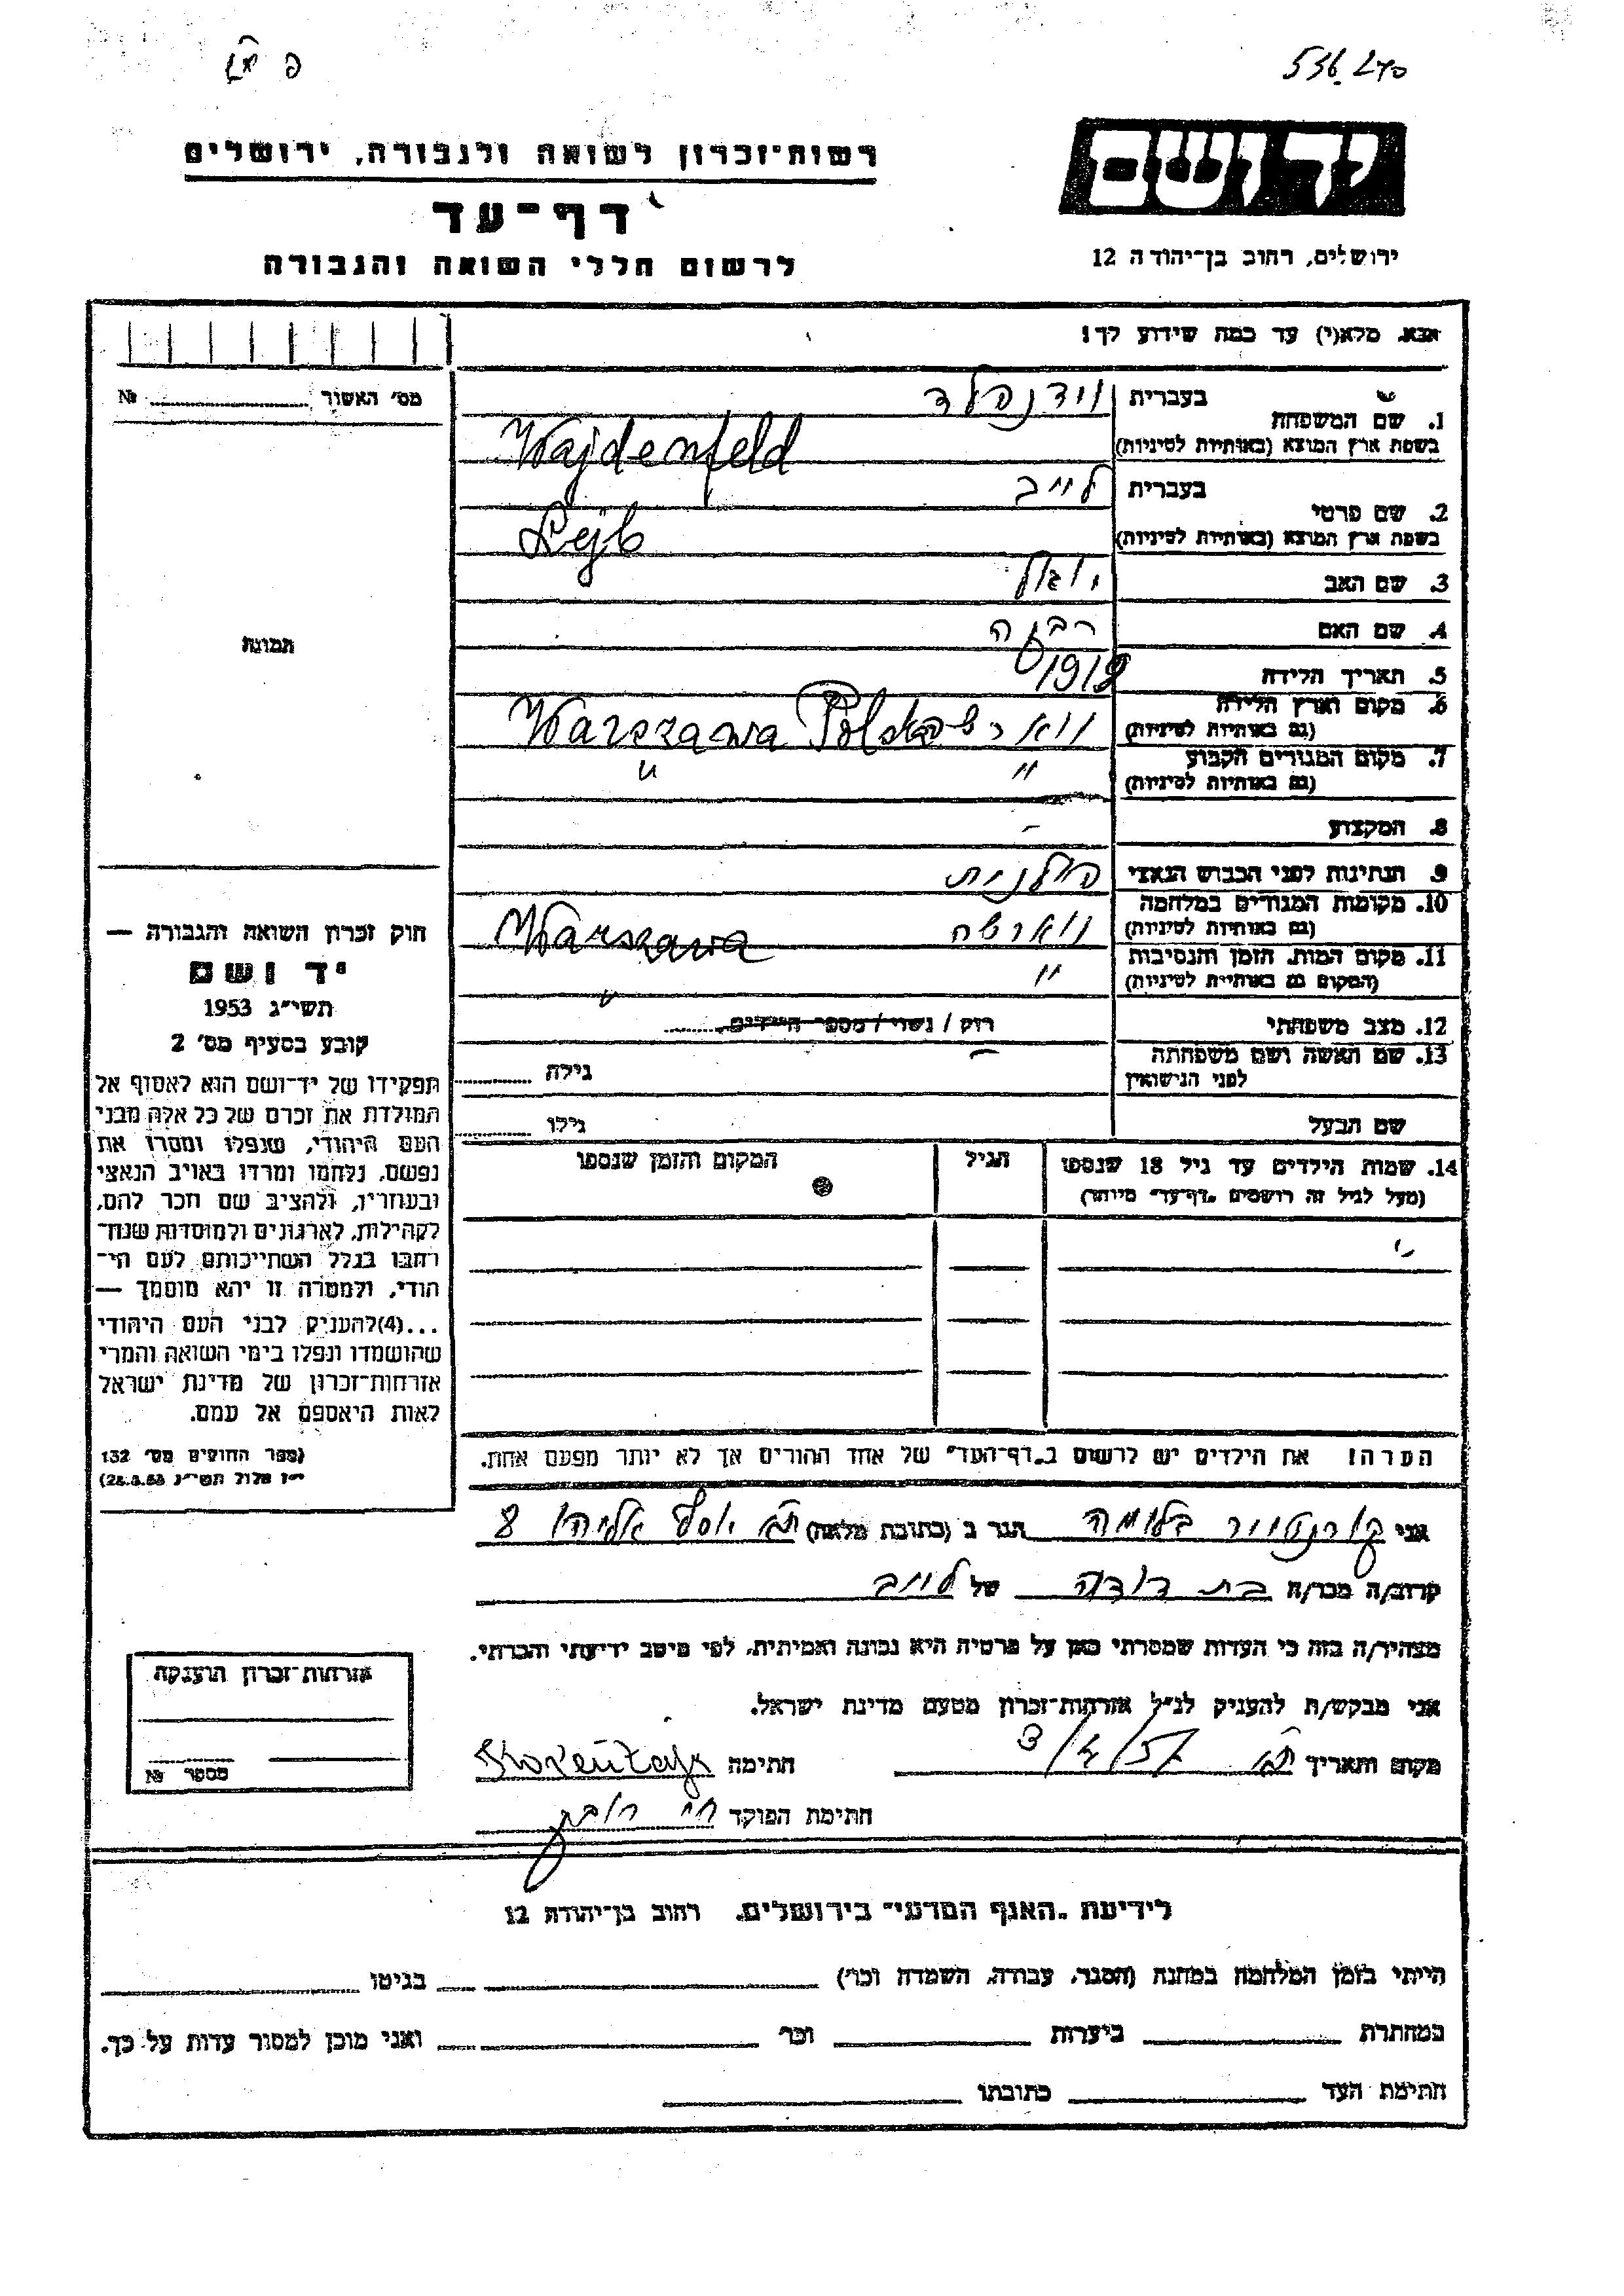 רשות־זכרון לשואה ולגבורה, ירושלים
יד ושם
דף־עד
לרשום חללי השואה והגבורה
ירושלים, רחוב בן־יהודה 12
אנא, מלא(י) עד כמה שידוע לך!
מס׳ האשור № 
1. שם המשפחה בעברית וידנפלד
בשפת ארץ המוצא (באותיות לטיניות) Wajdenfeld
2. שם פרטי בעברית לייב
בשפת ארץ המוצא (באותיות לטיניות) Lejb
3. שם האב
4. שם האם
5. תאריך הלידה
6. מקום וארץ הלידה
(גם באותיות לטיניות) Warszawa Polska
7. מקום המגורים הקבוע " "
(גם באותיות לטיניות)
8. המקצוע -
9. הנתינות לפני הכבוש הנאצי פולנית
10. מקומות המגורים במלחמה
(גם באותיות לטיניות) ווארשה Warszawa
11. מקום המות, הזמן והנסיבות " "
(המקום גם באותיות לטיניות)
12. מצב משפחתי רווק / נשוי / מספר הילדים
13. שם האשה ושם משפחתה - גילה
לפני הנישואין
שם הבעל גילו
14. שמות הילדים עד גיל 18 שנספו הגיל המקום והזמן שנספו
(מעל לגיל זה רושמים „דף־עד" מיוחד)
תמונה
חוק זכרון השואה והגבורה —
יד ושם
תשי״ג 1953
קובע בסעיף מס׳ 2
תפקידו של יד־ושם הוא לאסוף אל
המולדת את זכרם של כל אלה מבני
העם היהודי, שנפלו ומסרו את
נפשם, נלחמו ומרדו באויב הנאצי
ובעוזריו, ולהציב שם וזכר להם,
לקהילות, לארגונים ולמוסדות שנח־
רבו בגלל השתייכותם לעם הי־
הודי, ולמטרה זו יהא מוסמך —
...(4)להעניק לבני העם היהודי
שהושמדו ונפלו בימי השואה והמרי
אזרחות־זכרון של מדינת ישראל
לאות היאספם אל עמם.
(ספר החוקים מס׳ 132
י״ז אלול תשי״ג 28.8.53)
הערה! את הילדים יש לרשום ב„דף־העד" של אחד ההורים אך לא יותר מפעם אחת.
אני בלומה הגר ב (כתובת מלאה) ת״א יוסף אליהו 8
קרוב/ה מכר/ה בת דודה של לייב
מצהיר/ה בזה כי העדות שמסרתי כאן על פרטיה היא נכונה ואמיתית, לפי מיטב ידיעתי והכרתי.
אני מבקש/ת להעניק לנ״ל אזרחות־זכרון מטעם מדינת ישראל.
מקום ותאריך ת״א 3/4/57 חתימה
חתימת הפוקד
אזרחות־זכרון הוענקה
מספר №
לידיעת „האגף המדעי" בירושלים, רחוב בן־יהודה 12
הייתי בזמן המלחמה במחנה (הסגר, עבודה, השמדה וכו׳) בגיטו
במחתרת ביערות וכו׳ ואני מוכן למסור עדות על כך.
חתימת העד כתובתו